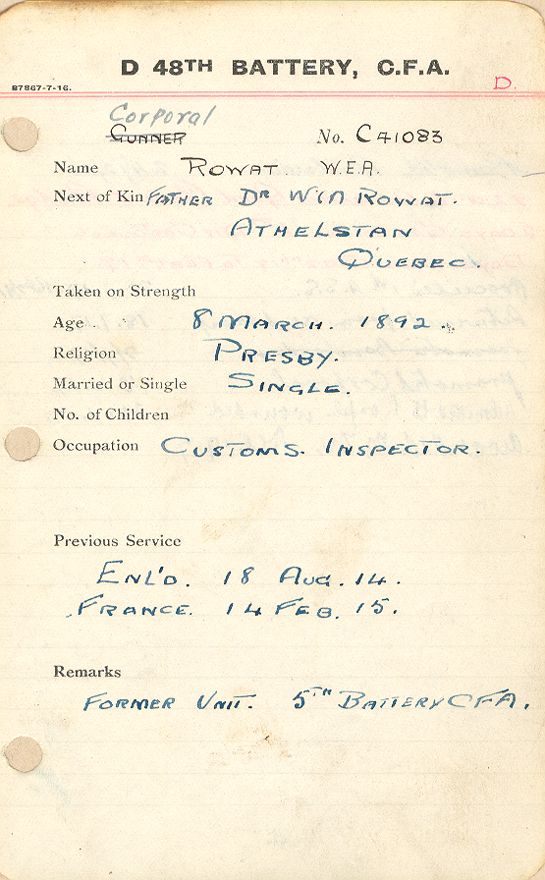 D 48TH BATTERY, C.F.A.
87867-7-16.
D.
Corporal
GUNNER No. C41083
Name ROWAT W.E.A.
Next of Kin FATHER DR. W M ROWAT.
ATHELSTAN
QUEBEC
Taken on Strength
Age . 8 MARCH. 1892.
Religion PRESBY.
Married or Single SINGLE.
No. of Children
Occupation CUSTOMS. INSPECTOR.
Previous Service
ENL'D. 18 AUG. 14.
FRANCE. 14 FEB. 15.
Remarks
FORMER UNIT. 5TH BATTERY CFA.